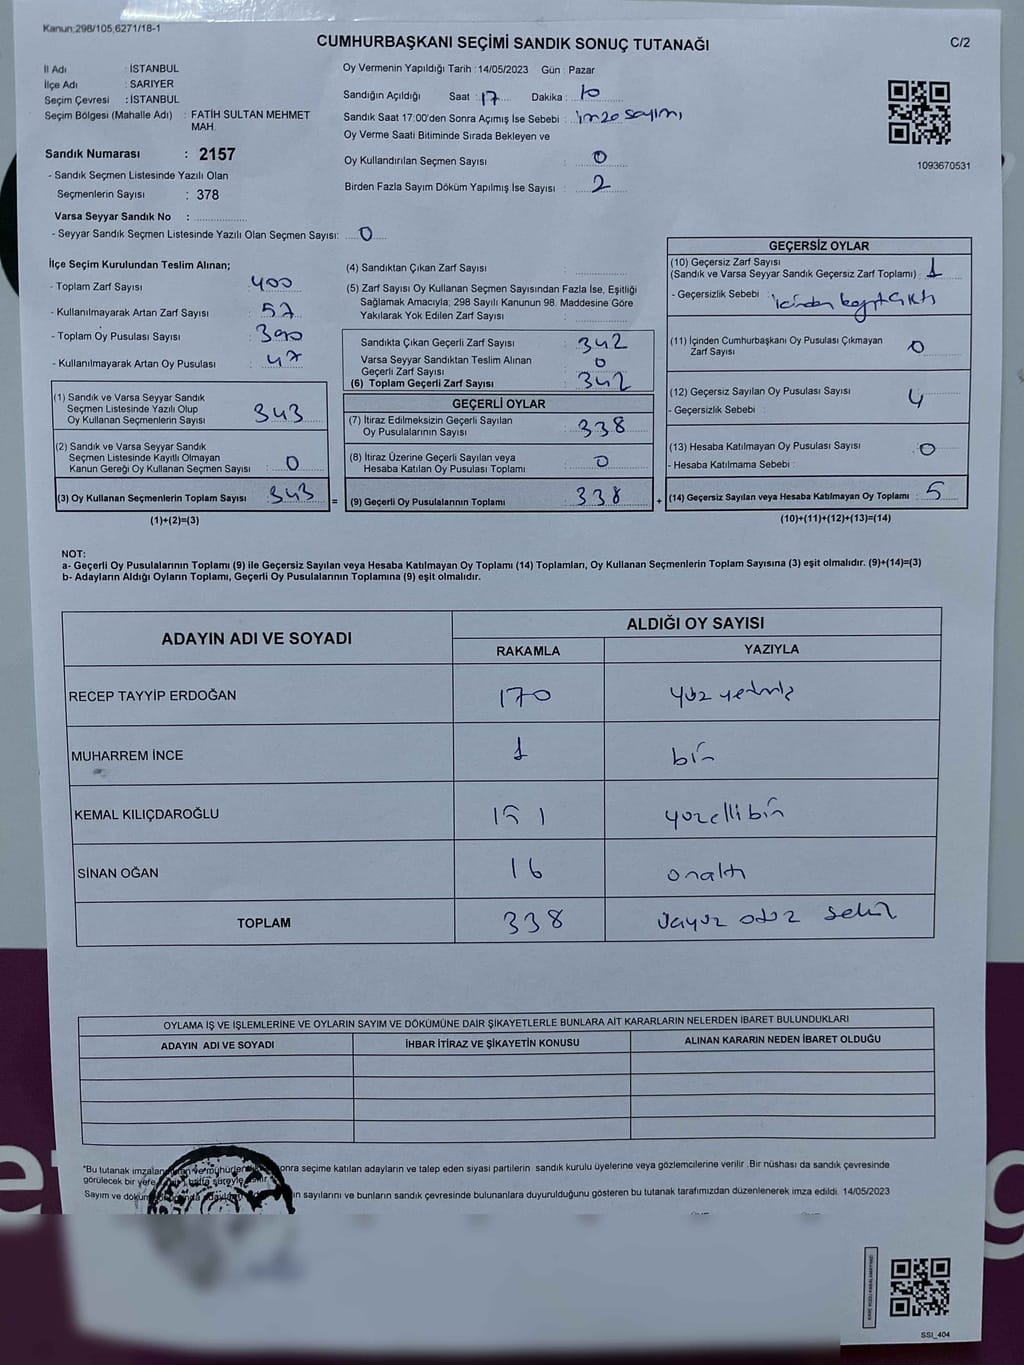 Kanun:298/105,6271/18-1
CUMHURBAŞKANI SEÇİMİ SANDIK SONUÇ TUTANAĞI
C/2
İl Adı : İSTANBUL
İlçe Adı : SARIYER
Seçim Çevresi : İSTANBUL
Seçim Bölgesi (Mahalle Adı) : FATİH SULTAN MEHMET
MAH.
Sandık Numarası : 2157
- Sandık Seçmen Listesinde Yazılı Olan
Seçmenlerin Sayısı : 378
Varsa Seyyar Sandık No : ...............
- Seyyar Sandık Seçmen Listesinde Yazılı Olan Seçmen Sayısı: 0
Oy Vermenin Yapıldığı Tarih : 14/05/2023 Gün : Pazar
Sandığın Açıldığı Saat : 17 Dakika : 10
Sandık Saat 17:00'den Sonra Açımış İse Sebebi : imza sayımı
Oy Verme Saati Bitiminde Sırada Bekleyen ve
Oy Kullandırılan Seçmen Sayısı : 0
Birden Fazla Sayım Döküm Yapılmış İse Sayısı : 2
1093670531
İlçe Seçim Kurulundan Teslim Alınan;
- Toplam Zarf Sayısı : 400
- Kullanılmayarak Artan Zarf Sayısı : 57
- Toplam Oy Pusulası Sayısı : 390
- Kullanılmayarak Artan Oy Pusulası : 47
(1) Sandık ve Varsa Seyyar Sandık
Seçmen Listesinde Yazılı Olup
Oy Kullanan Seçmenlerin Sayısı : 343
(2) Sandık ve Varsa Seyyar Sandık
Seçmen Listesinde Kayıtlı Olmayan
Kanun Gereği Oy Kullanan Seçmen Sayısı : 0
(3) Oy Kullanan Seçmenlerin Toplam Sayısı : 343
(1)+(2)=(3)
(4) Sandıktan Çıkan Zarf Sayısı :
(5) Zarf Sayısı Oy Kullanan Seçmen Sayısından Fazla İse, Eşitliği
Sağlamak Amacıyla; 298 Sayılı Kanunun 98. Maddesine Göre
Yakılarak Yok Edilen Zarf Sayısı :
Sandıkta Çıkan Geçerli Zarf Sayısı : 342
Varsa Seyyar Sandıktan Teslim Alınan
Geçerli Zarf Sayısı : 0
(6) Toplam Geçerli Zarf Sayısı : 342
GEÇERLİ OYLAR
(7) İtiraz Edilmeksizin Geçerli Sayılan
Oy Pusulalarının Sayısı : 338
(8) İtiraz Üzerine Geçerli Sayılan veya
Hesaba Katılan Oy Pusulası Toplamı : 0
= (9) Geçerli Oy Pusulalarının Toplamı : 338
GEÇERSİZ OYLAR
(10) Geçersiz Zarf Sayısı
(Sandık ve Varsa Seyyar Sandık Geçersiz Zarf Toplamı) : 1
- Geçersizlik Sebebi : içinden kağıt çıktı
(11) İçinden Cumhurbaşkanı Oy Pusulası Çıkmayan
Zarf Sayısı : 0
(12) Geçersiz Sayılan Oy Pusulası Sayısı : 4
- Geçersizlik Sebebi :
(13) Hesaba Katılmayan Oy Pusulası Sayısı : 0
- Hesaba Katılmama Sebebi :
+ (14) Geçersiz Sayılan veya Hesaba Katılmayan Oy Toplamı : 5
(10)+(11)+(12)+(13)=(14)
NOT:
a- Geçerli Oy Pusulalarının Toplamı (9) ile Geçersiz Sayılan veya Hesaba Katılmayan Oy Toplamı (14) Toplamları, Oy Kullanan Seçmenlerin Toplam Sayısına (3) eşit olmalıdır. (9)+(14)=(3)
b- Adayların Aldığı Oyların Toplamı, Geçerli Oy Pusulalarının Toplamına (9) eşit olmalıdır.
ADAYIN ADI VE SOYADI
ALDIĞI OY SAYISI
RAKAMLA YAZIYLA
RECEP TAYYİP ERDOĞAN 170 yüz yetmiş
MUHARREM İNCE 1 bir
KEMAL KILIÇDAROĞLU 151 yüzellibir
SİNAN OĞAN 16 onaltı
TOPLAM 338 üçyüz otuz sekiz
OYLAMA İŞ VE İŞLEMLERİNE VE OYLARIN SAYIM VE DÖKÜMÜNE DAİR ŞİKAYETLERLE BUNLARA AİT KARARLARIN NELERDEN İBARET BULUNDUKLARI
ADAYIN ADI VE SOYADI İHBAR İTİRAZ VE ŞİKAYETİN KONUSU ALINAN KARARIN NEDEN İBARET OLDUĞU
"Bu tutanak imzalan ve mühürlen onra seçime katılan adayların ve talep eden siyasi partilerin sandık kurulu üyelerine veya gözlemcilerine verilir .Bir nüshası da sandık çevresinde
görülecek bir yere hafta süreyle asılır
Sayım ve döküm ın sayılarını ve bunların sandık çevresinde bulunanlara duyurulduğunu gösteren bu tutanak tarafımızdan düzenlenerek imza edildi. 14/05/2023
SSI_404